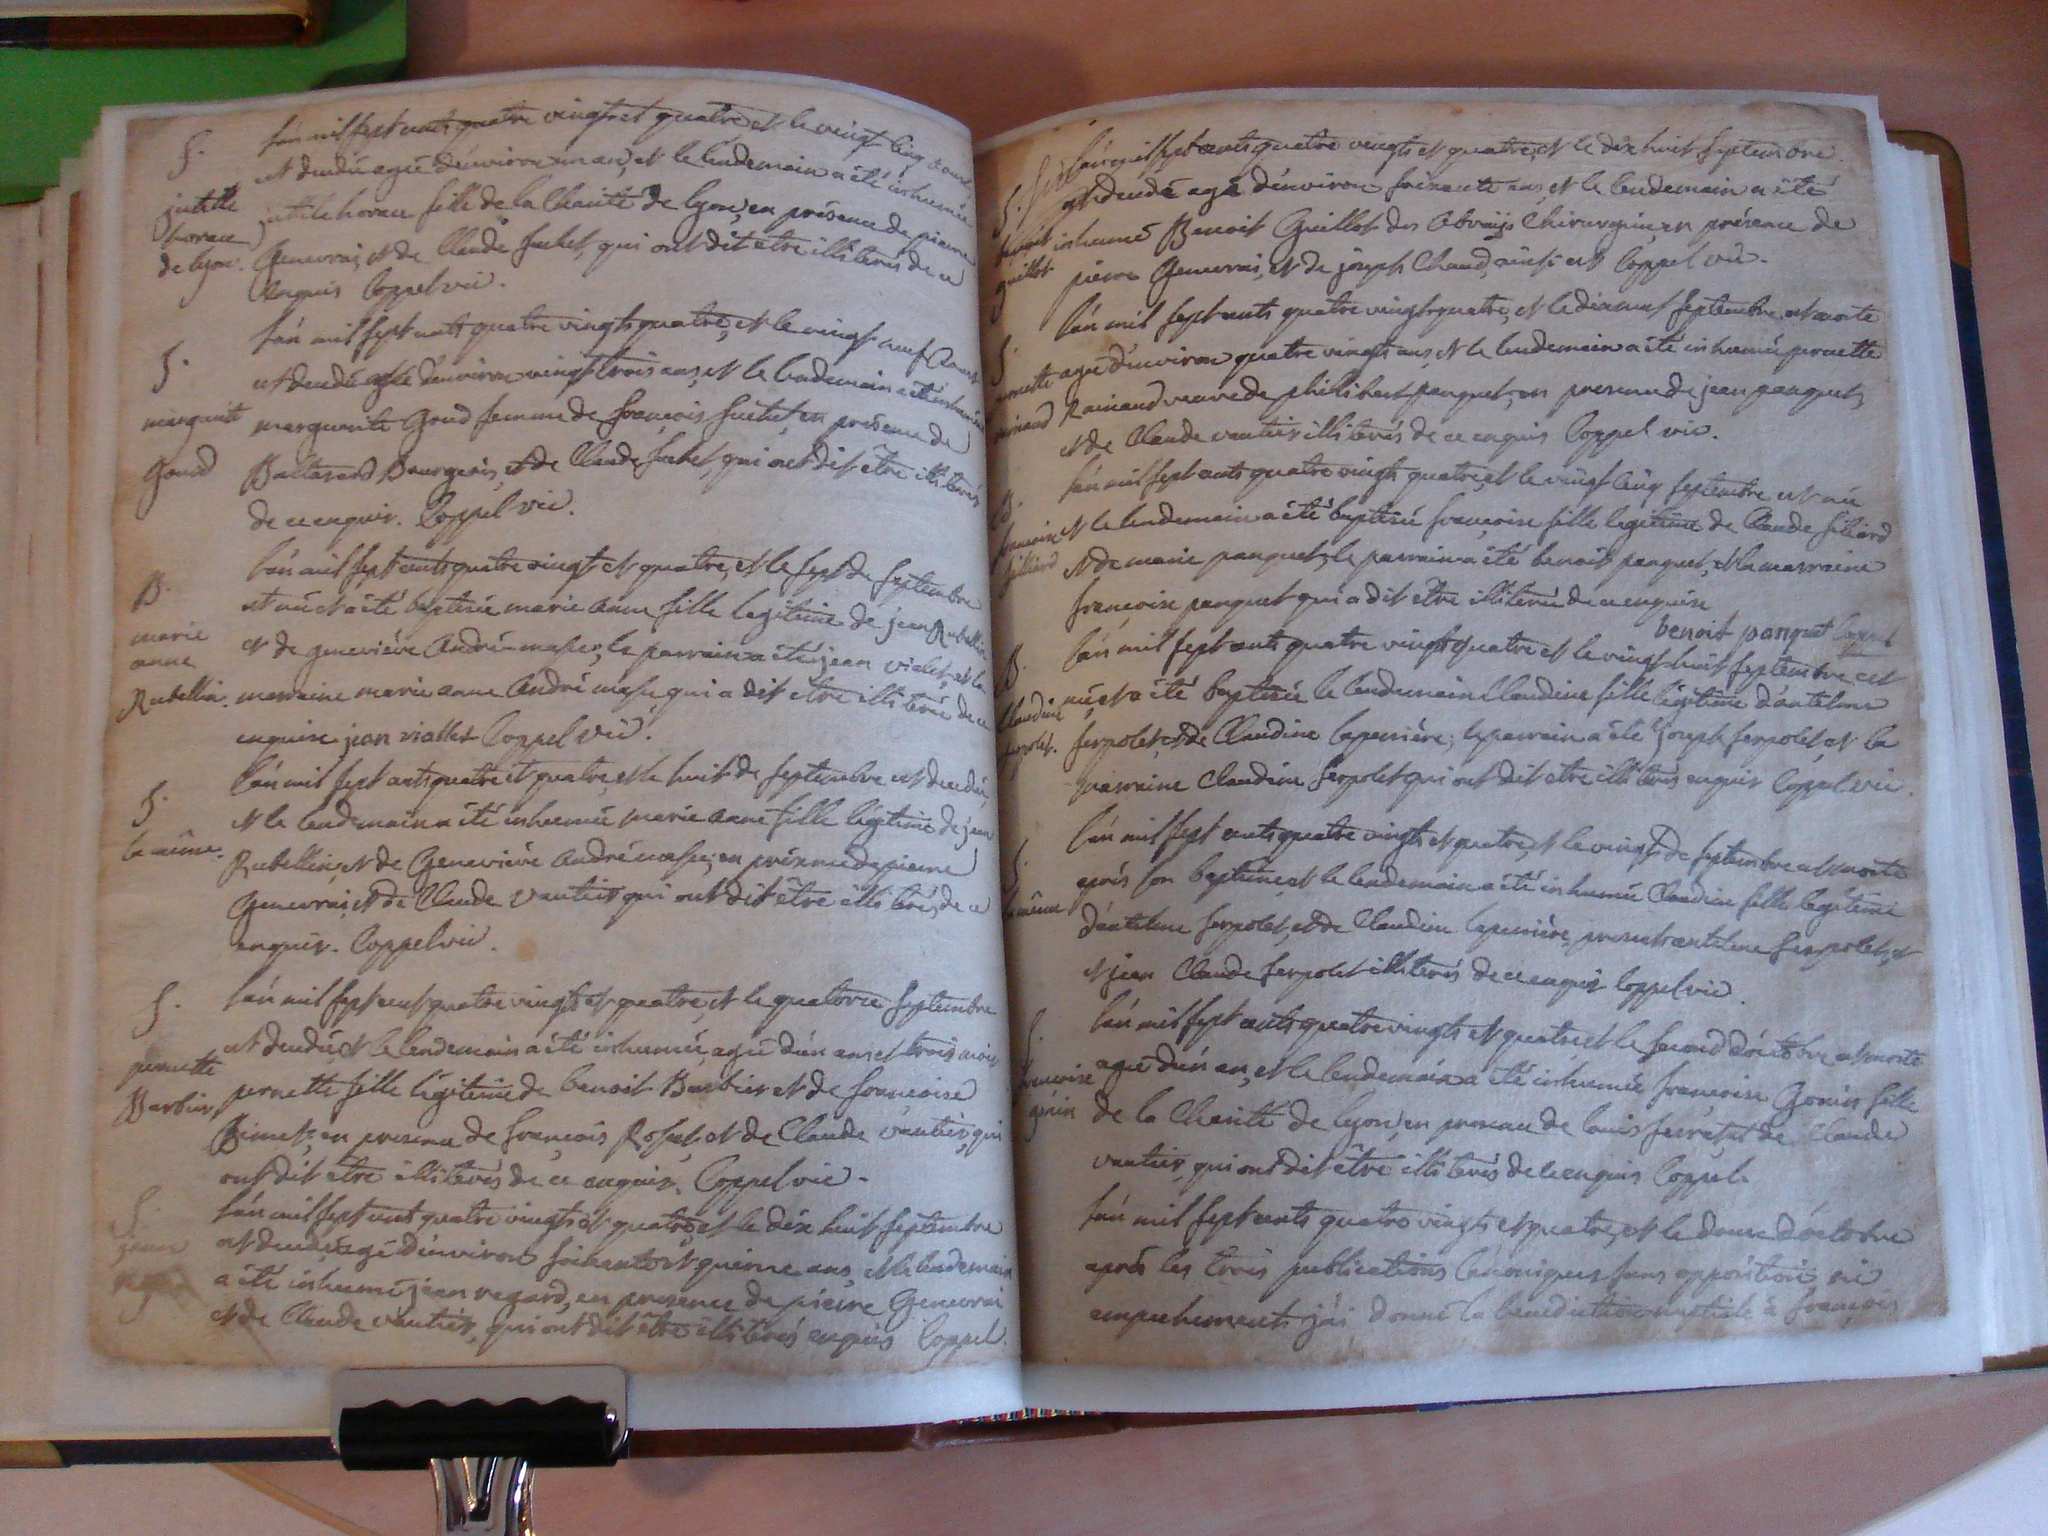 S.
justille
horau
de lyon.
l'án mil sept cents quatre vingts et quatre et le vingt cinq aoust
est décédé agée d'environ un an, et le lendemain a été inhumée
justile horau fille de la Charité de lyon, en présence de pierre
Genevrai, et de Claude suchet, qui ont dit etre illiterés de ce
enquis Coppel vic.
S.
marguerite
Goud
l'án mil sept cents quatre vingts quatre, et le vingt neuf aoust
est décédé agée d'environ vingt trois ans, et le lendemain a été inhumée
marguerite Goud femme de françois suchet, en présence de
Baltazard Bourgeois, et de Claude suchet, qui ont dit etre illiterés
de ce enquis. Coppel vic.
B.
marie
anne
Rubellin.
l'án mil sept cents quatre vingt et quatre, et le sept de septembre
est née et a été baptisée marie anne fille legitime de jean Rubellin
et de geneviéve André-masse, le parrain a été jean vialet, et la
marraine marie anne André masse qui a dit etre illiterée de ce
enquise jean viallet Coppel vic.
S.
la même.
l'án mil sept cents quatre et quatre, et le huit de septembre est décédée,
et le lendemain a été inhumée marie anne fille légitime de jean
Rubellin, et de Geneviéve André masse, en présence de pierre
Genevrai, et de Claude vautier qui ont dit être illiterés de ce
enquis. Coppel vic.
S.
pernette
Barbier,
l'án mil sept cent quatre vingts et quatre, et le quatorze septembre
est décédée et le lendemain a été inhumée, agée d'un ans et trois mois
pernette fille légitime de benoit Barbier et de francoise
en presence de françois et de Claude vautier, qui
ont dit etre illiterés de ce enquis. Coppel vic.
S.
jean
regard
l'án mil sept cent quatre vingts et quatre, et le dix huit septembre
est décédé agé d'environ soixante et quinze ans, et le lendemain
a été inhumé jean regard, en presence de pierre Genevrai
et de Claude vautier, qui ont dit être illiterés enquis Coppel.
S.
benoit
guillot
l'án mil sept cents quatre vingts et quatre, et le dix huit septembre
est décédé agé d'environ soixante ans, et le lendemain a été
inhumé Benoit Guillot des Chirurgien, en présence de
pierre Genevrai, et de joseph Chaud, Coppel vic.
S.
pernette
rainaud
l'án mil sept cents quatre vingts quatre, et le dix neuf septembre est morte
agée d'environ quatre vingts ans, et le lendemain a été inhumée pernette
Rainaud veuve de philibert panquet, en presence de jean panquet,
et de Claude vautier illiterés de ce enquis Coppel vic.
B.
francoise
filliard
l'án mil sept cents quatre vingts quatre, et le vingt cinq septembre est née
et le lendemain a été baptisée françoise fille legitime de Claude filiard
et de marie panquet, le parrain a été benoit panquet, et la marraine
françoise panquet qui a dit etre illiterée de ce enquise
benoit panquet Coppel
B.
Claudine
serpolet.
l'án mil sept cents quatre vingts quatre et le vingt huit septembre est
née, et a été baptisée le lendemain Claudine fille légitime d'antelme
serpolet, et de Claudine laperriére; le parrain a été joseph serpolet, et la
marraine Claudine serpolet qui ont dit etre illiterés enquis Coppel vic.
S.
la même
l'án mil sept cents quatre vingts et quatre, et le vingt de septembre est morte
aprés son baptême, et le lendemain a été inhumée Claudine fille legitime
d'antelme serpolet, et de Claudine laperriére, presents antelme serpolet, et
et jean Claude serpolet illiterés de ce enquis Coppel vic.
S.
francoise
gonin
l'án mil sept cents quatre vingts et quatre et le second d'octobre est morte
agée d'un an, et le lendemain a été inhumée francoise Gonin fille
de la Charité de lyon, en presence de louis et de Claude
vautier, qui ont dit être illiterés de ce enquis Coppel.
l'án mil sept cents quatre vingts et quatre, et le douze d'octobre
aprés les trois publications Canoniques sans opposition ni
empechements j'ai donné la benediction nuptiale à françois